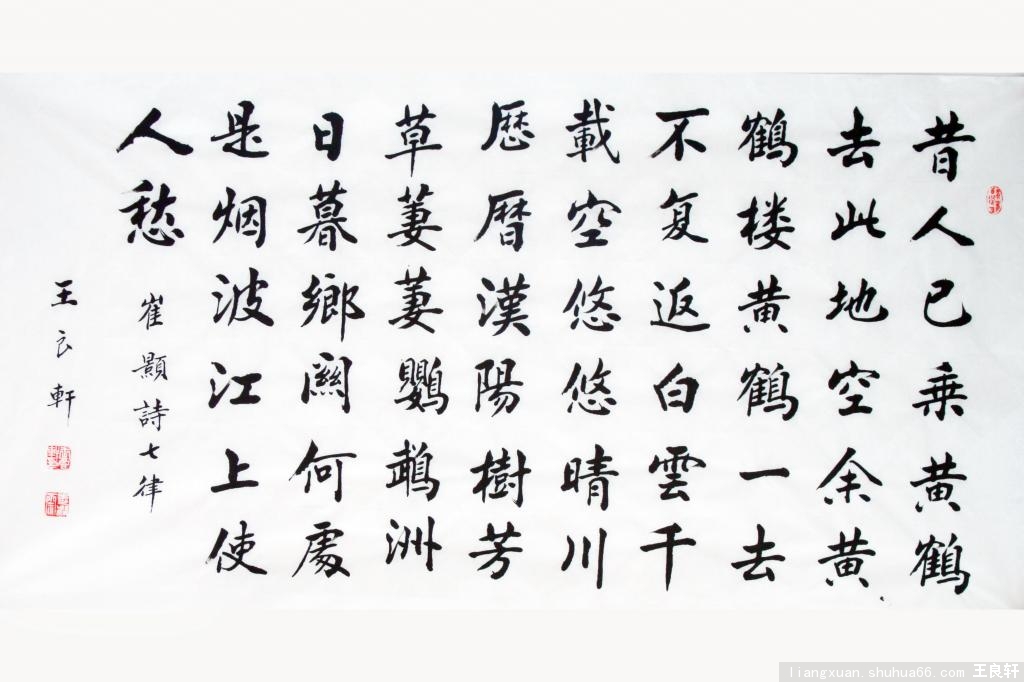 昔人已乘黄鶴
去此地空余黄
鶴楼黄鶴一去
不复返白雲千
載空悠悠晴川
歷曆漢陽樹芳
草萋萋鸚鵡洲
日暮鄉關何處
是烟波江上使
人愁
崔顥詩七律
王良軒
liangxuan.shuhua66.com 王良轩